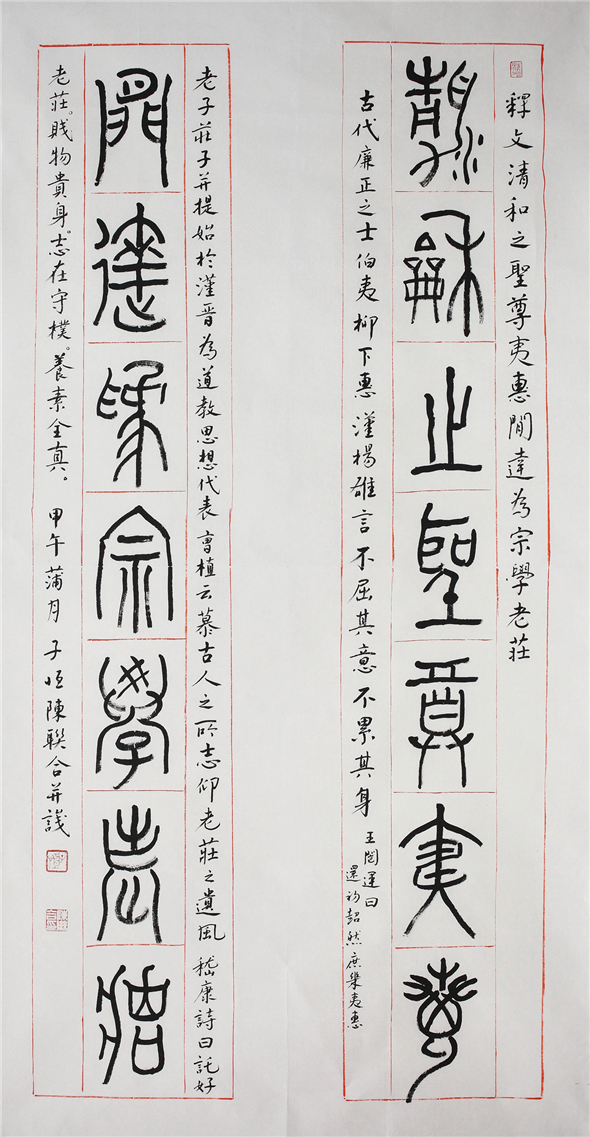 釋文清和之聖尊夷惠閒達為宗學老莊
清龢之聖尊夷惠
古代廉正之士伯夷柳下惠漢楊雄言不屈其意不累其身
王闓運曰
還初超然庶幾夷惠
老子莊子并提始於漢晉為道教思想代表曹植云慕古人之所志仰老莊之遺風
嵇康詩曰託好
閒達為宗學老莊
老莊。賤物貴身。志在守樸。養素全真。
甲午蒲月子恒陳聯合并識